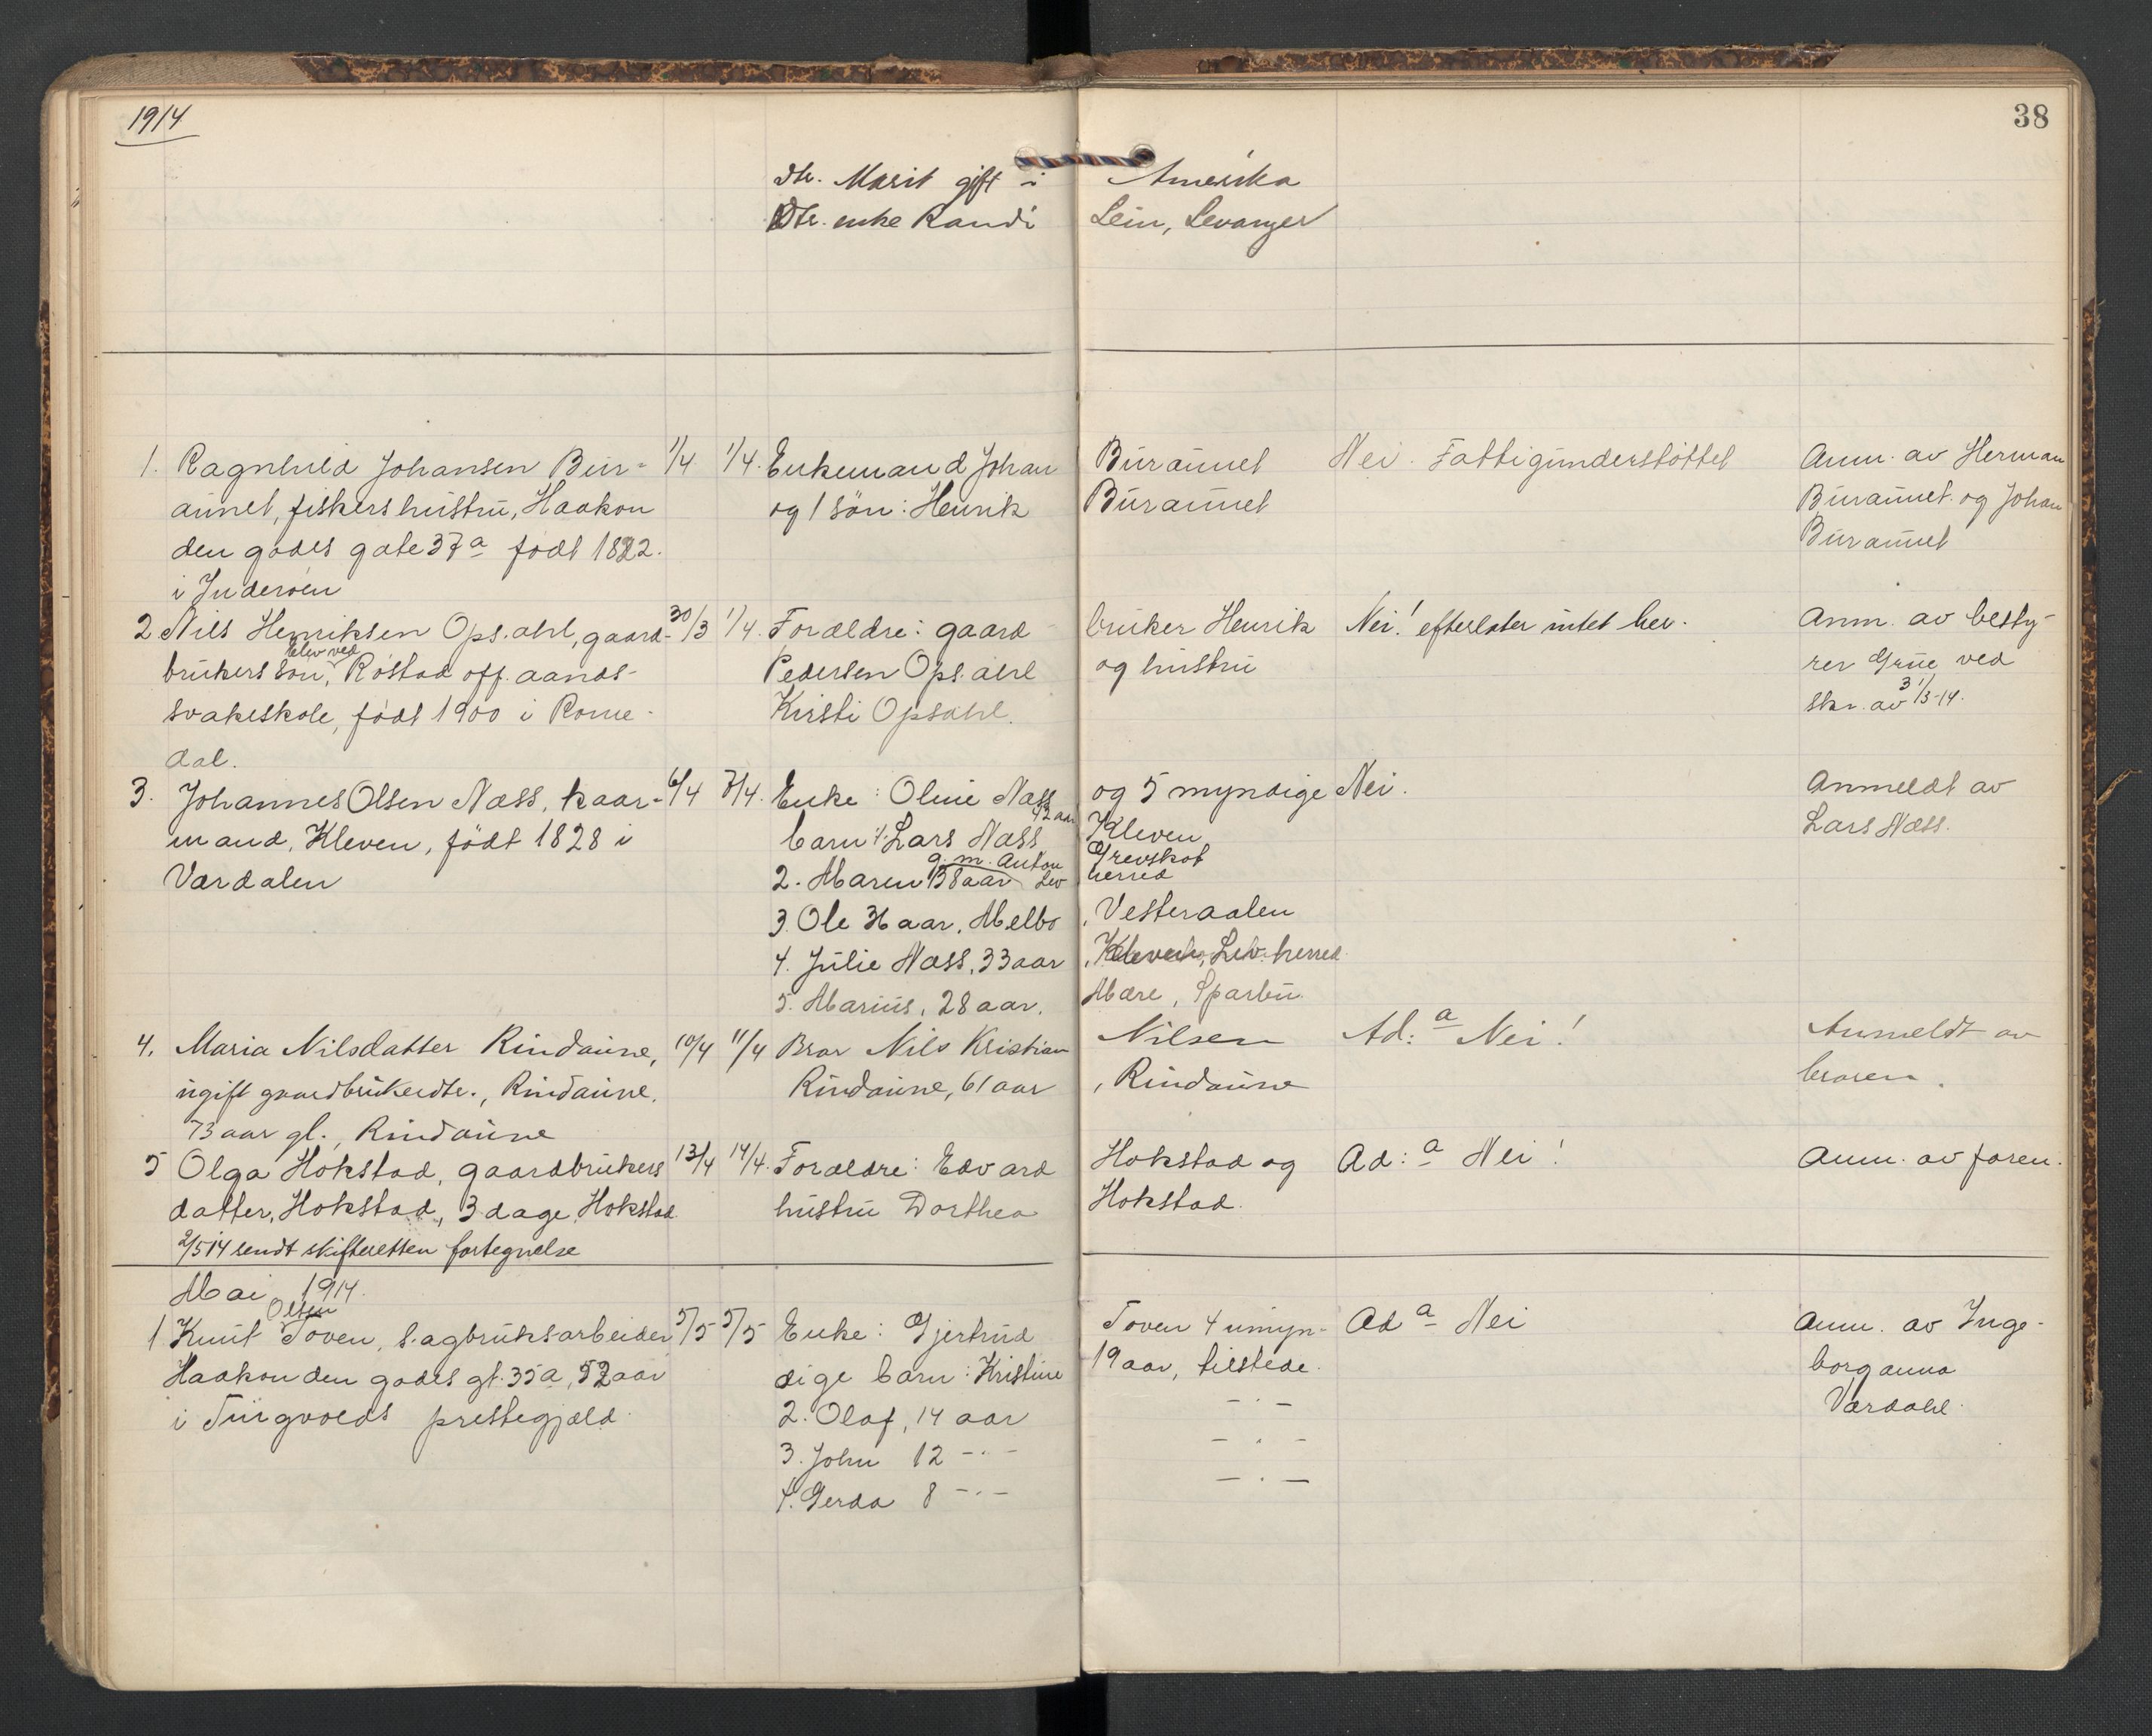 1914
38
Dtr. Marit gift i Amerika
Dtr. enke Randi Lein, Levanger
1. Ragnhild Johansen Bur- 1/4 1/4. Enkemand Johan Buraunet Nei. Fattigunderstöttet Anm. av Herman
aunet, fiskers hustru, Haakon og 1 sön: Henrik Buraunet Buraunet og Johan
den godes gate 37a født 1882. Buraunet
i Inderöen
2 Nils Henriksen Opsahl, gaard- 30/3 1/4. Forældre: gaard bruker Henrik Nei! efterlater intet her. Anm. av besty-
brukers sön, elev ved Röstad off. aands- Pedersen Opsahl og hustru rer Grüe ved
svakeskole, födt 1900 i Rome- Kirsti Opsahl. skr. av 31/3-14.
dal.
3. Johannes Olsen Næss, kaar- 6/4 7/4. Enke: Oline Næss og 5 myndige Nei. Anmeldt av
mand, Kleven, födt 1828 i barn: 1. Lars Næss 42 aar Kleven Lars Næss.
Værdalen 2. Maren 38 aar g. m. Anton Grevskot Lev herred
3. Ole 36 aar, Melbo, Vesteraalen
4. Julie Næss, 33 aar, Kleven, Lev. herred.
5. Marius, 28 aar. Mære, Sparbu.
4. Maria Nilsdatter Rindaune, 10/4 11/4 Bror Nils Kristian Nilsen Ad: a Nei! Anmeldt av
ugift gaardbrukerdtr., Rindaune. Rindaune, 61 aar, Rindaune broren.
73 aar gl., Rindaune
5 Olga Hokstad, gaardbrukers 13/4 14/4. Forældre: Edvard Hokstad og Ad: a Nei! Anm. av faren.
datter, Hokstad, 3 dage, Hokstad hustru Dorthea Hokstad.
2/5 14 sendt skifteretten fortegnelse
Mai 1914.
1 Knut Olsen Toven, sagbruksarbeider 5/5 5/5 Enke: Gjertrud Toven 4 umyn- Ad a Nei Anm. av Inge-
Haakon den godes gt. 35a, 52 aar dige barn: Kristine 19 aar, tilstede. borganna
i Tingvolds prestegjæld. 2. Olaf, 14 aar -.- Værdahl.
3. John 12 -.- -.-
4. Gerda 8 -.- -.-